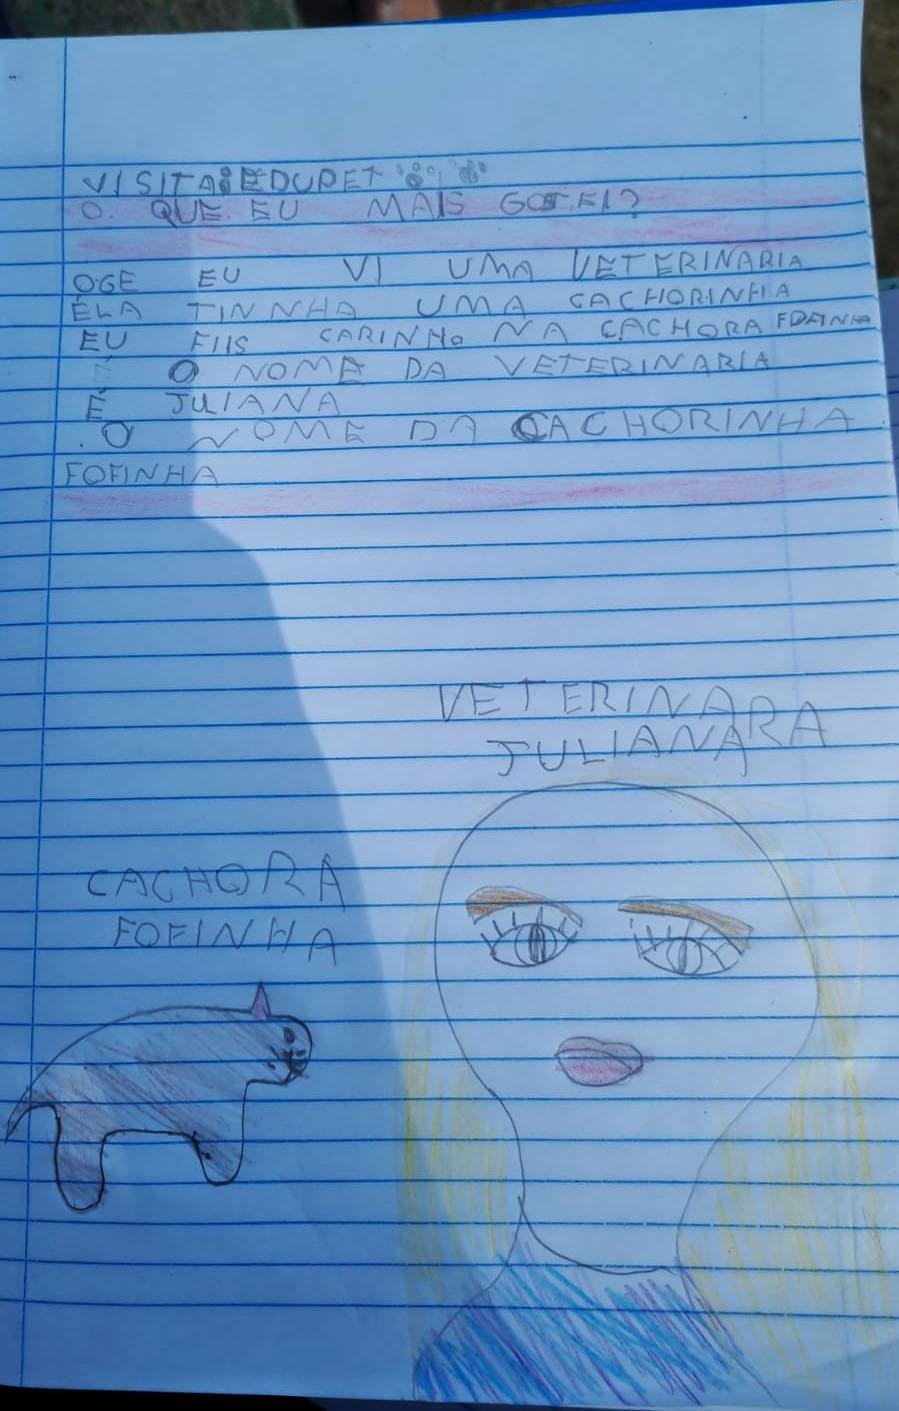 VISITA EDUPET
O. QUE. EU MAIS GOSTEI?
OGE EU VI UMA VETERINARIA
ELA TINNHA UMA CACHORINHA
EU FIIS CARINHO NA CACHORA FOFINHA
O NOME DA VETERINARIA
É JULIANA
.O NOME DA CACHORINHA
FOFINHA
VETERINARA
JULIANA
CACHORA
FOFINHA